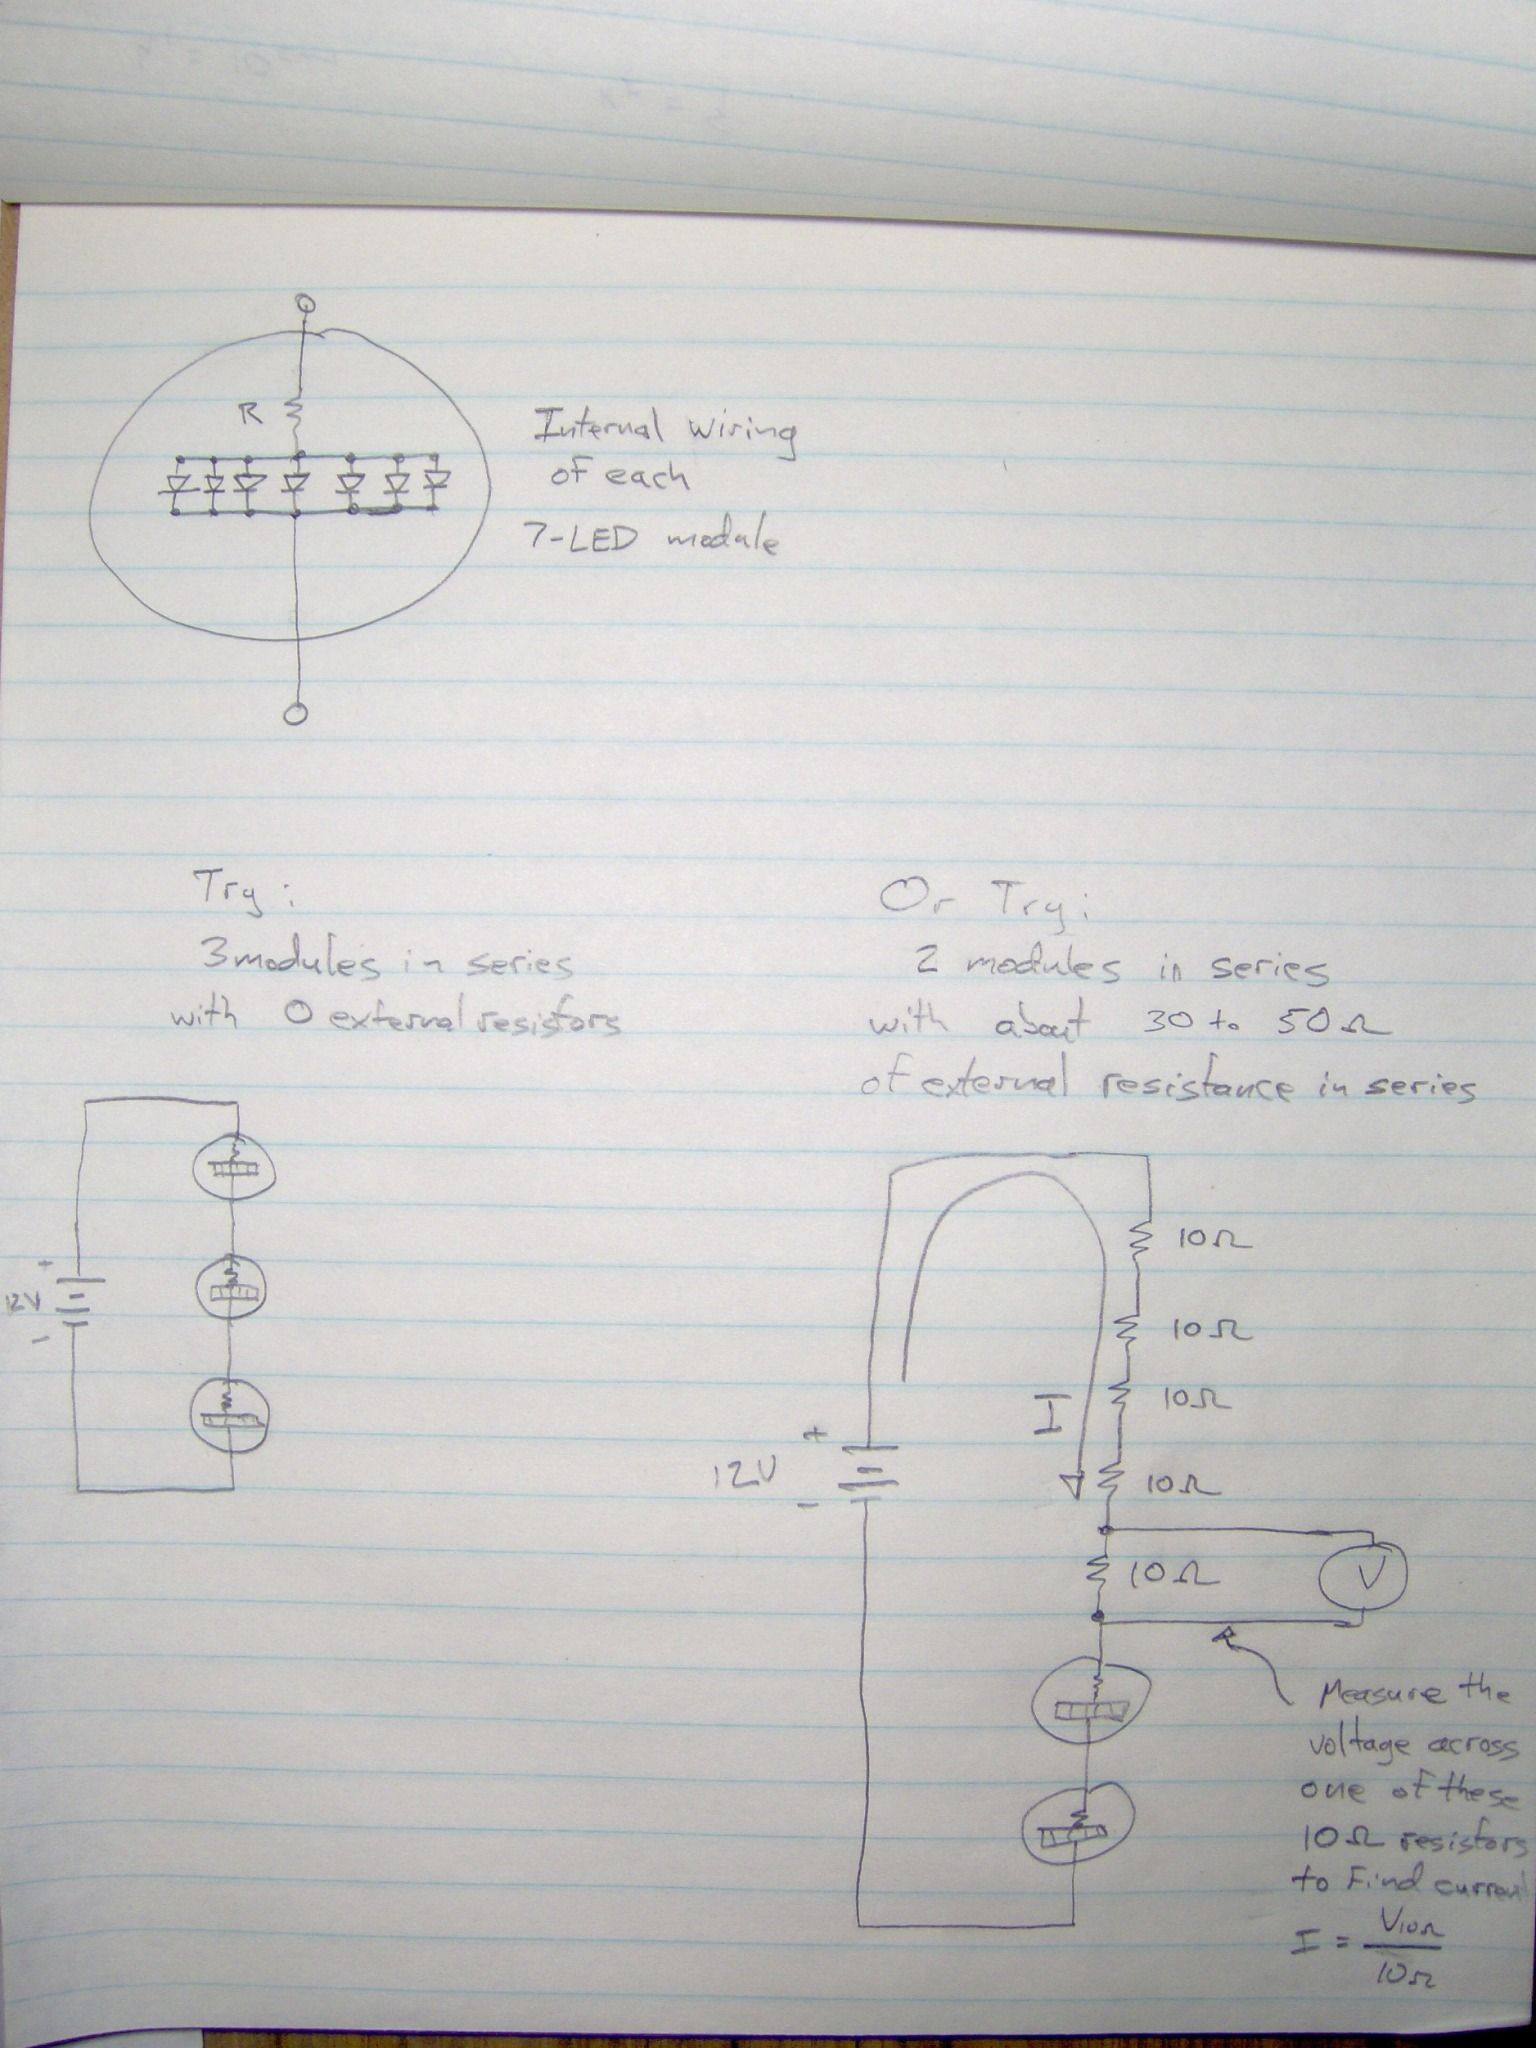 R
Internal wiring
of each
7-LED module
Try:
3 modules in series
with 0 external resistors
+
12V
-
Or Try:
2 modules in series
with about 30 to 50Ω
of external resistance in series
10Ω
10Ω
10Ω
I
10Ω
+
12V
-
10Ω
V
Measure the
voltage across
one of these
10Ω resistors
to find current
I = V10Ω
10Ω